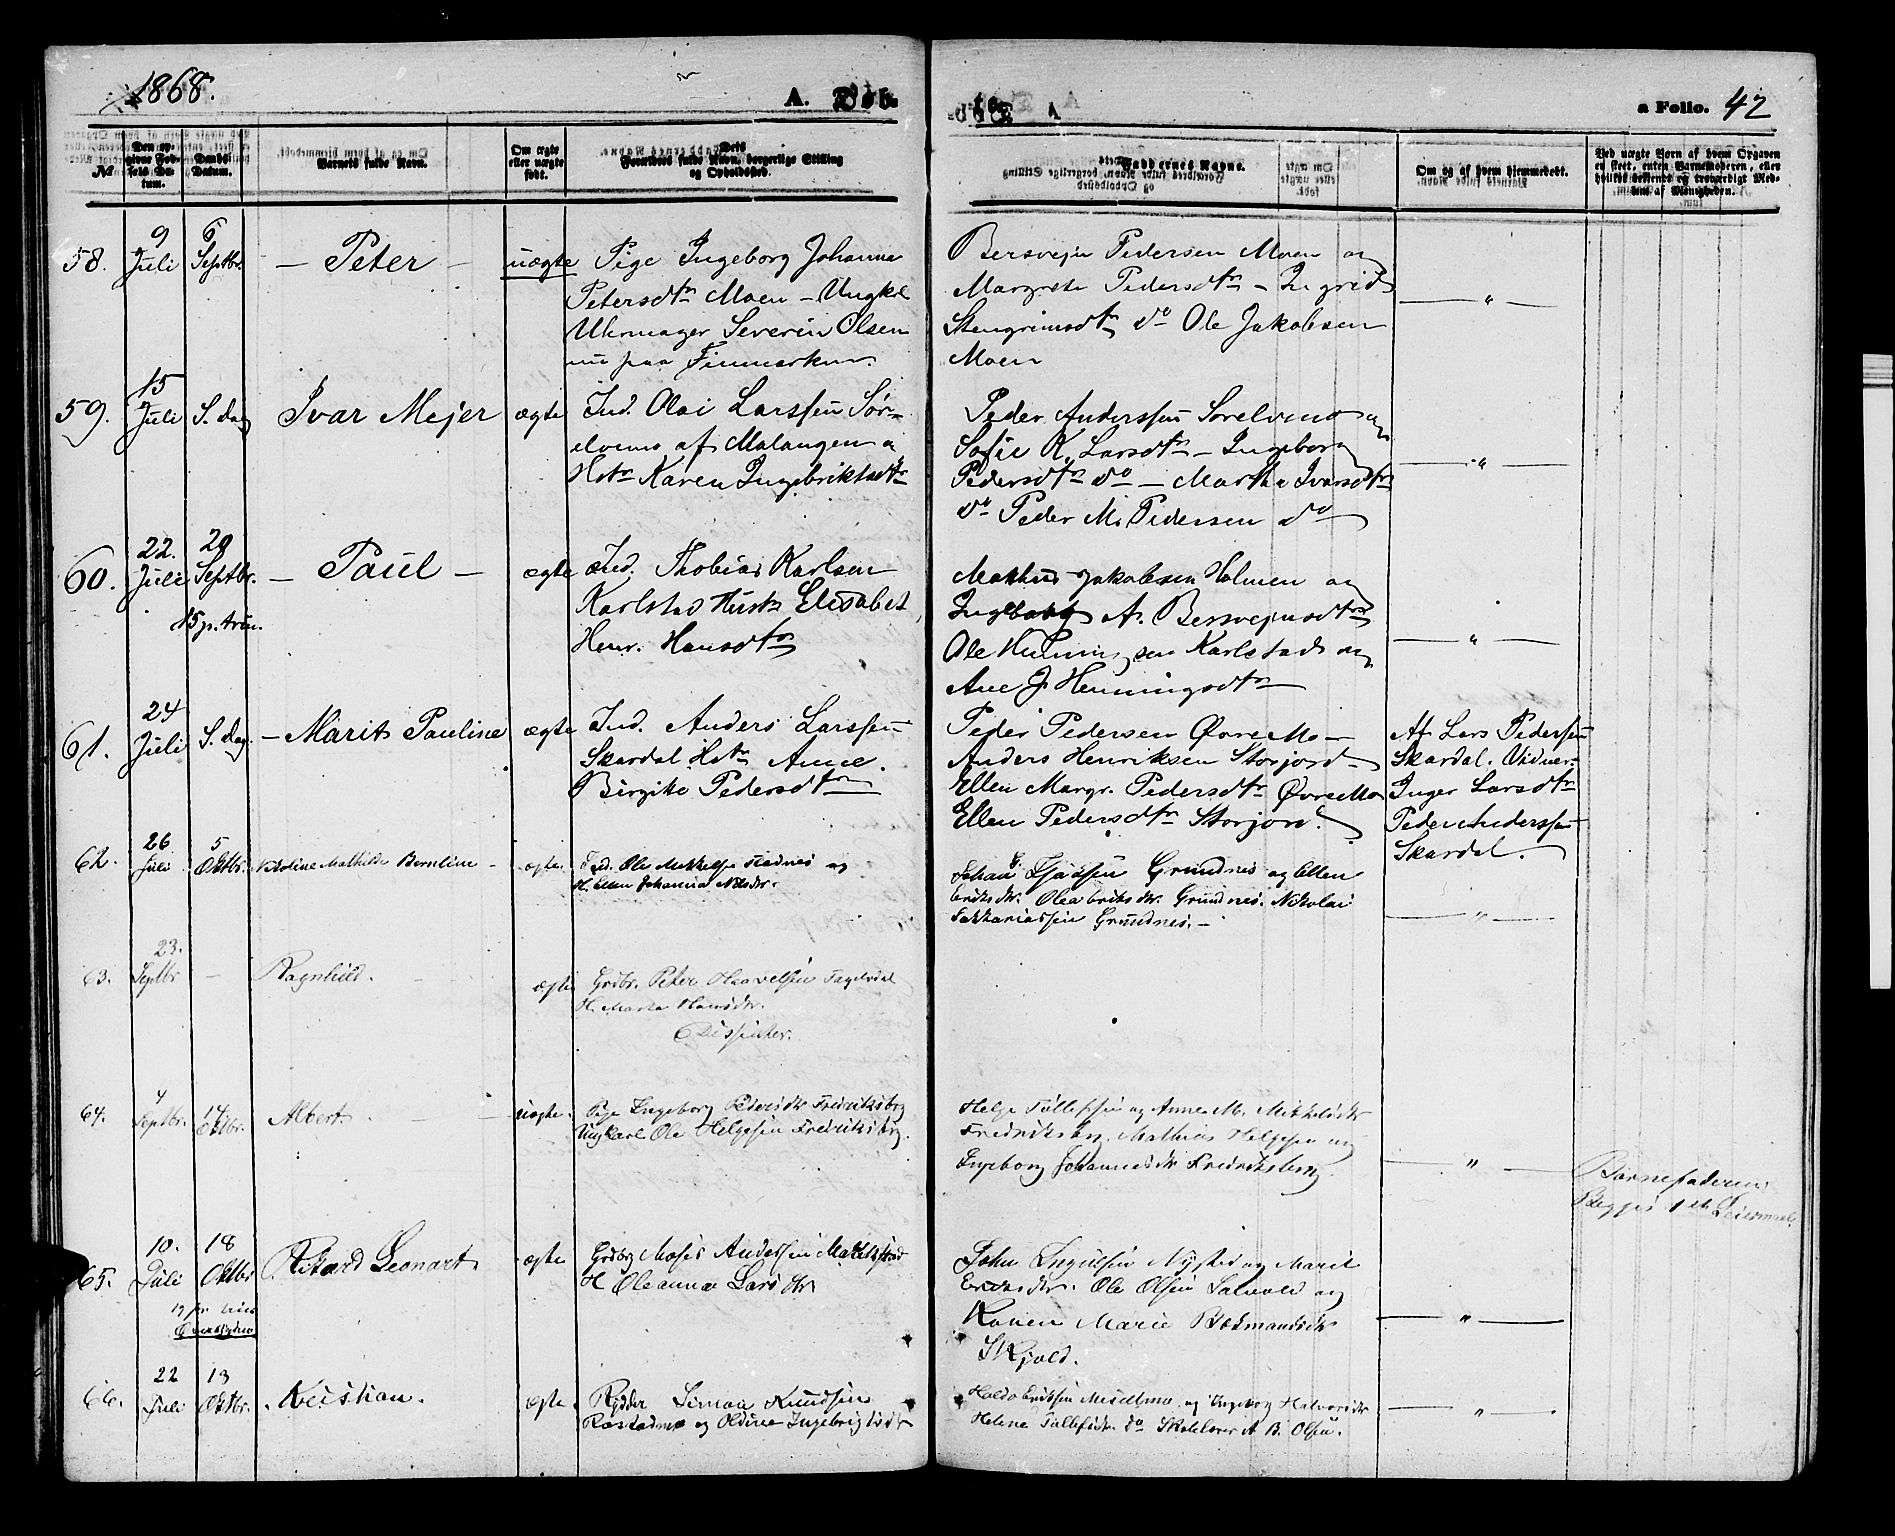 1868.
A. Døb.
a Folio. 42
№
Den opgivne Fødsels Datum.
Daabs Datum.
Barnets fulde Navn.
Om ægte eller uægte født.
Dets Forældres fulde Navn, borgerlige Stilling og Opholdssted.
Faddernes Navne.
Om og af hvem hjemmedøbt.
Ved uægte Børn af hvem Opgaven er skeet, enten Barnemoderen, eller hvilket bekjendt og troværdigt Medlem af Menigheden.
58. 9 Juli 6 Septbr. — Peter — uægte
Pige Ingeborg Johanna
Petersdtr Moen — Ungkl
Uhrmager Severin Olsen
nu paa Finmarken.
Bersvejn Pedersen Moen og
Margrete Pedersdtr — Ingrid
Stengrimsdtr do Ole Jakobsen
Moen
— " —
59. 15 Juli S. Dag Ivar Mejer ægte
Ind. Olai Larssen Sør-
elvmo af Malangen og
Hstr Karen Ingebriktsdtr
Peder Anderssen Sørelvmo og
Sofie K. Larsdtr — Ingeborg
Pedersdtr do — Martha Ivarsdtr
do Peder M. Pedersen do
— " —
60. 22. Juli 20 Septbr. — Paul — ægte
15 p. trin.
Ind. Thobias Karlsen
Karlstad Hustr Elisabet
Henr. Hansdtr
Mathis Jakobsen Holmen og
Ingeborg A. Bersvejnsdtr
Ole Henningsen Karlstad og
Ane J Henningsdtr
— " —
61. 24 Juli S. Dag. — Marit Pauline ægte
Ind. Anders Larssen
Skardal Hstr Anne
Birgite Pedersdtr
Peder Pedersen Øvre Mo —
Anders Henriksen Storjord —
Ellen Margr. Pedersdtr Øvre Mo
Ellen Pedersdtr Storjord.
Af Lars Pederssen
Skardal. Vidner
Inger Larsdtr
Peder Anderssen
Skardal.
62. 26 Juli 5 Oktbr. Nikoline Mathilde Bernline — ægte.
Ind. Ole Mikkelsen
H. Ellen Johanna Nilsdtr.
Johan Isaksen Grundnes og Ellen
Eriksdtr. Olea Eriksdtr. Grundnes. Nikolai
Sakkariassen Grundnes. —
— " —
63. 23. Septbr — Ragnhild. — ægte
Grdbr. Peter Haavelsen Fagelidal
H. Marta Hansdtr.
Dissenter.
64. 4 Septbr. 14 Oktbr. Albert. — uægte.
Pige Ingeborg Pedersdtr Fredriksberg
Ungkarl Ole Helgesen Fredriksberg.
Helge Tollefsen og Anne M. Mikkelsdtr
Fredriksberg. Mathias Helgesen og
Ingeborg Johannesdtr Fredriksberg.
— " —
Barnefaderen.
Begges 1ste Leiermaal.
65. 10. Juli 18 Oktbr Rikard Leonart ægte
Grdbr Moses Andersen
H Oleanna Larsdtr
John Ingulsen Nysted og Marit
Eriksdtr. Ole Olsen Salvold og
Karen Marie
Skjold.
— " —
66. 22 Juli 18 Oktbr. Kristian. ægte.
Rydder Simon Knudsen
Rostadmo og Oline Ingebrigtsdtr
Haldo Eriksen Moselmo og Ingeborg Halvorsdtr
Helene Tollefsdtr. do Skolelærer A. B. Olsen.
— " —